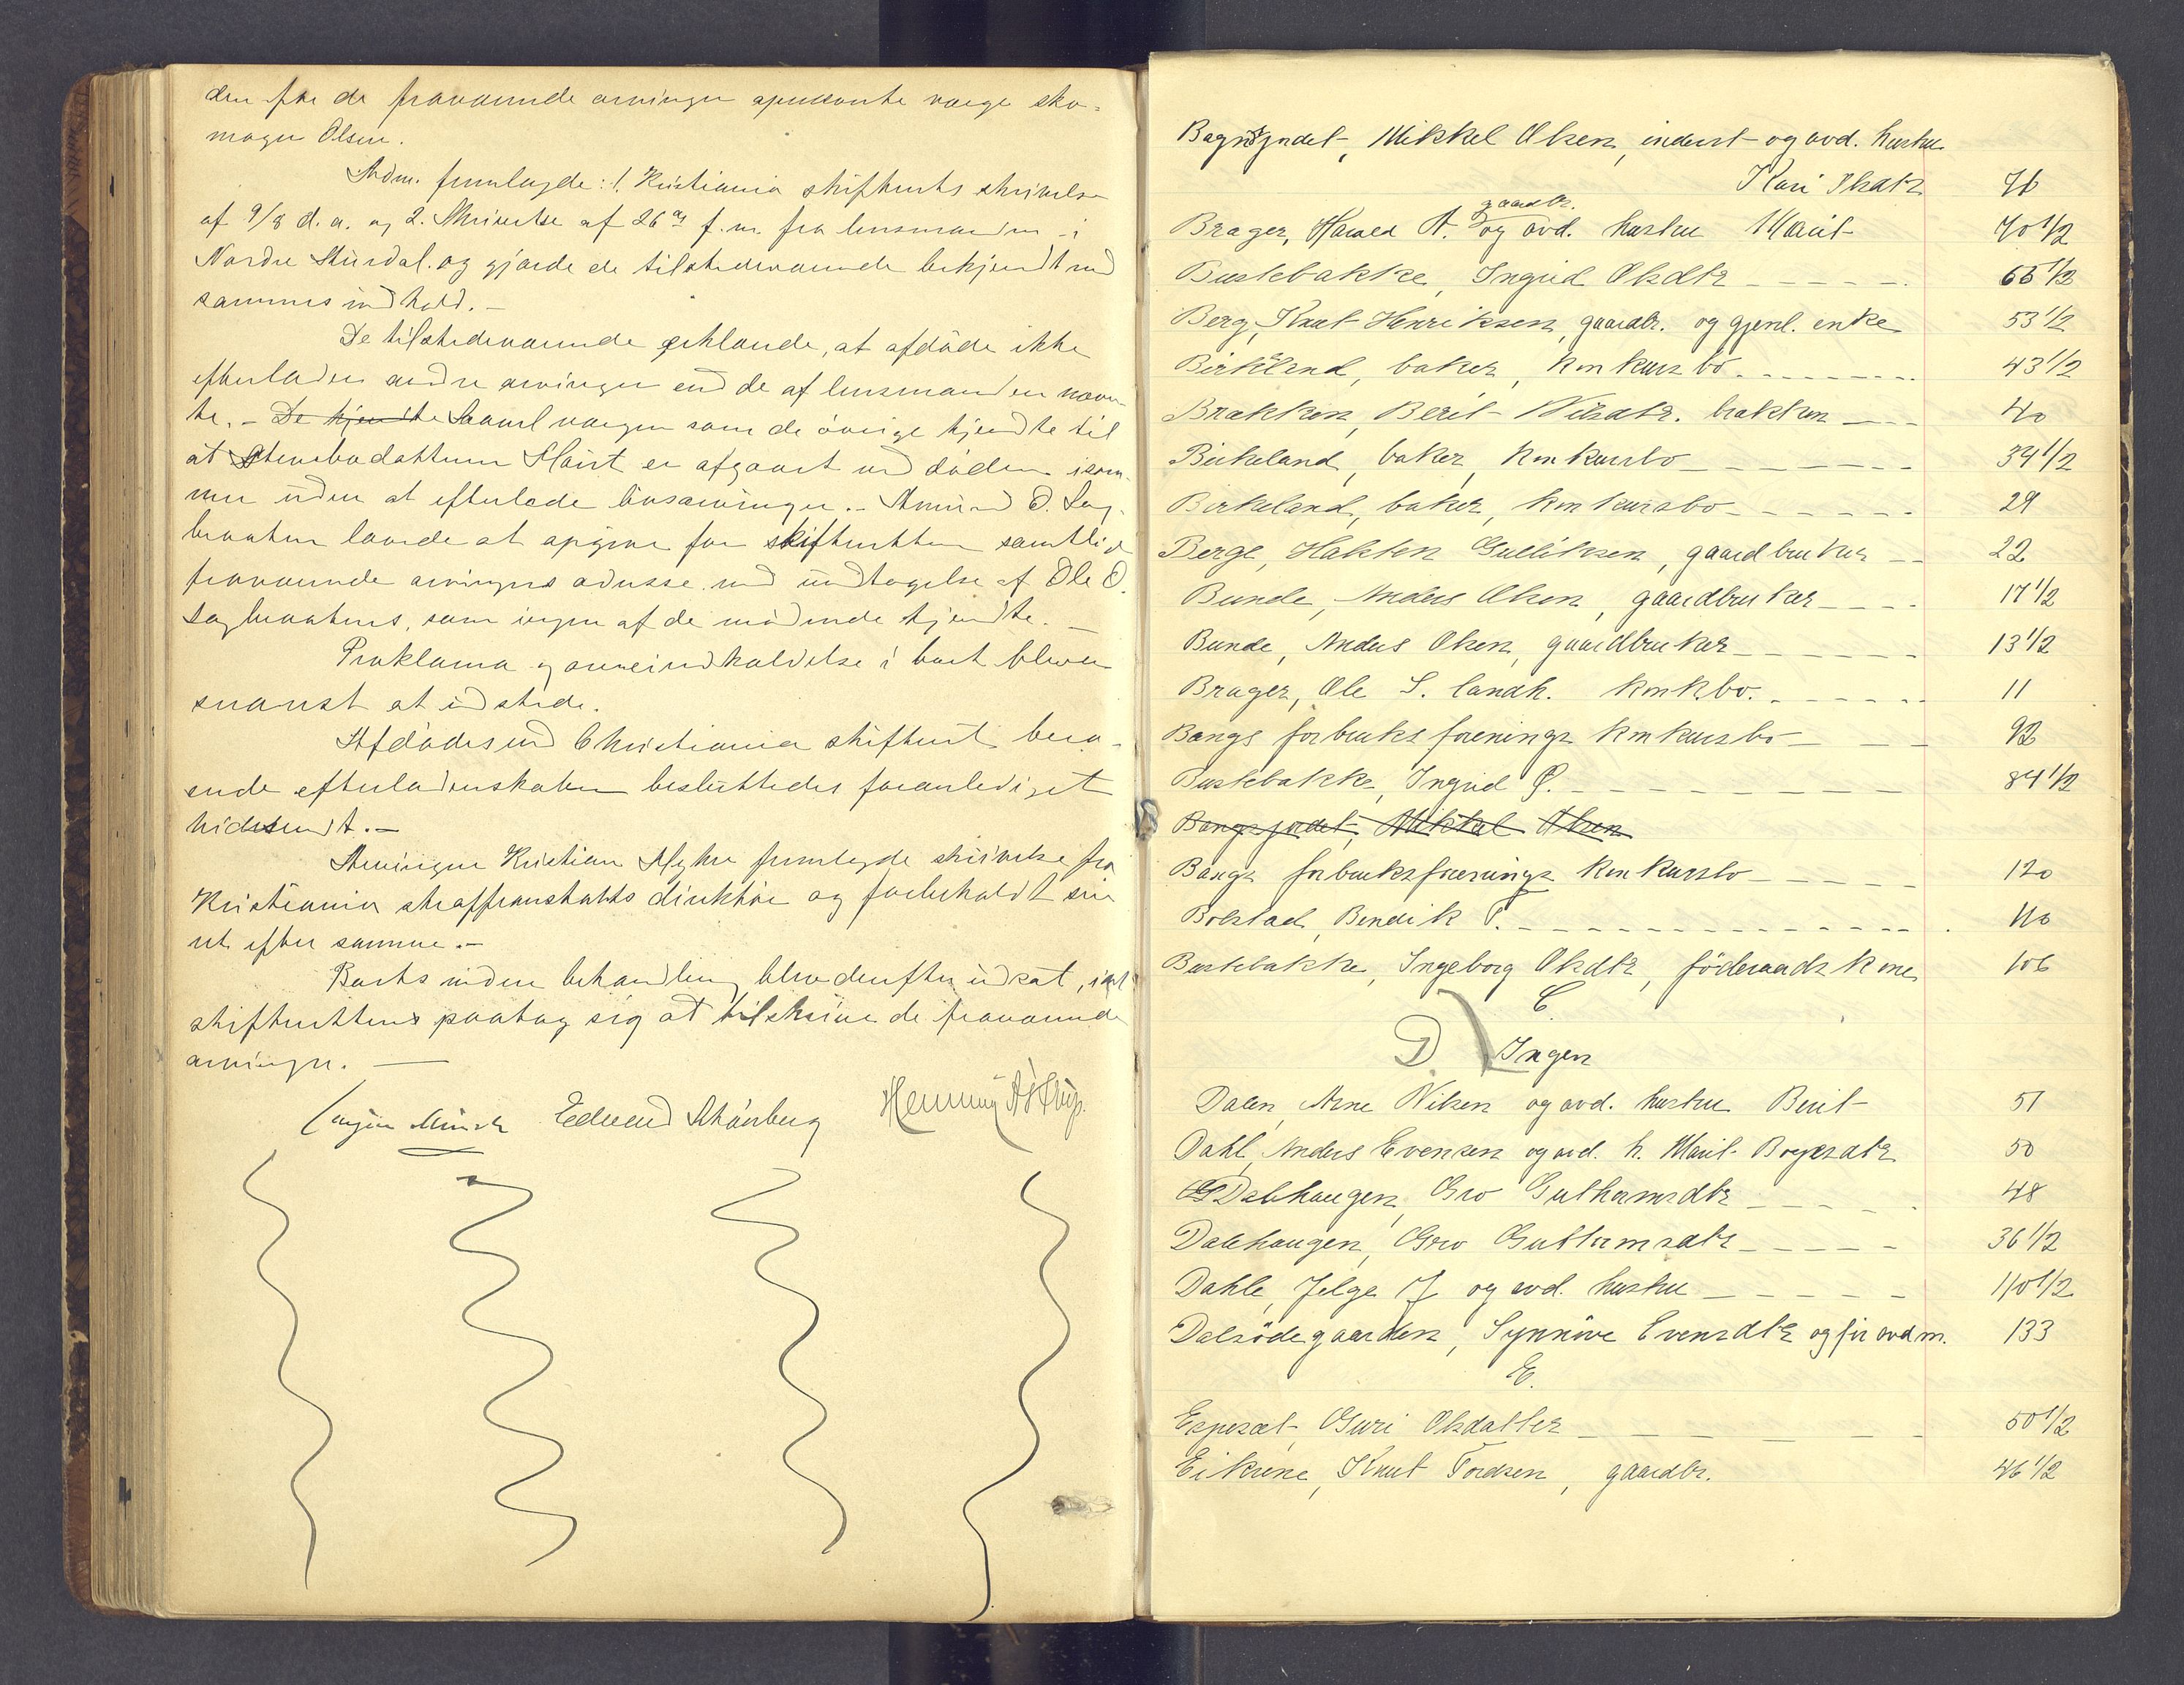 den for de fraværende arvinger opnævnte værge sko-
mager Olsen.
Adm. fremlagde: 1. Kristiania skifterets skrivelse
af 9/8 d.a. og 2. Skrivelse af 26de f.m. fra lensmanden i
Nordre Aurdal. og gjorde de tilstedeværende bekjendt med
sammes indhold. -
De tilstedeværende erklærde, at afdøde ikke
efterlader andre arvinger end de af lensmanden nævn-
te. - De kjendte Saavel værgen som de øvrige kjendte til
at Marit er afgaaet ved døden
uden at efterlade livsarvinger. - Amund O. Sag-
braaten lovede at opgive for skifteretten samtlige
fraværende arvingers adresse med undtagelse af Ole O.
Sagbraatens, som ingen af de mødende kjendte. -
Proklama og arveindkaldelse i boet blev
snarest at udstede.
Afdødes ved Christiania skifteret bero-
ende efterladenskaber besluttedes foranlediget
hidsendt. -
Arvingen Kristian Myhre fremlagde skrivelse fra
Kristiania straffeanstalts direktør og forbeholdt sin
ret efter samme. -
Boets videre behandling blev derefter udsat,
skifteretten paatog sig at tilskrive de fraværende
arvinger. -
Edvard Schönberg Henning
Bagnsjordet, Mikkel Olsen, inderst og avd. hustru
Kari 76
gaardbr.
Brager, Harald A. og avd. hustru Marit 70 1/2
Bustebakke, Ingrid Olsdtr - - - - - 65 1/2
Berg, Knut Henriksen, gaardbr. og gjenl. enke 53 1/2
Birkeland, baker, konkursbo - - - - - 43 1/2
Brakken, Berit Nilsdtr. brakken - - - 40
Birkeland, baker, konkursbo - - - - - 34 1/2
Birkeland, baker, konkursbo - - - - - 29
Berge, Halsten Gulliksen, gaardbruker - - 22
Bunde, Anders Olsen, gaardbruker - - - 17 1/2
Bunde, Anders Olsen, gaardbruker - - - - 13 1/2
Brager, Ole S. landh. konk.bo. - - - - 11
Bangs forbruksforenings konkursbo - - - 92
Bustebakke, Ingrid O. - - - - - - - 84 1/2
Bangsjordet, Mikkel Olsen
Bangs forbruksforenings konkursbo - - - - 120
Bolstad, Bendik T. - - - - - - - - 110
Bustebakke, Ingeborg Olsdtr, föderaadskone 106
C.
D. Ingen
Dalen, Arne Nilsen og avd. hustru Berit 51
Dahl, Anders Evensen og avd. h. Marit 50
Dalehaugen, Gro Guthormsdtr - - - - 48
Dalehaugen, Gro Guttormsdtr - - - - 36 1/2
Dahle, Helge J. og avd. hustru - - - - - 110 1/2
Dalsödegaarden, Synnöve Evensdtr og för avd m. 133
E.
Espeset, Guri Olsdatter - - - - - - 50 1/2
Eikrene, Knut Tordsen, gaardbr. 46 1/2